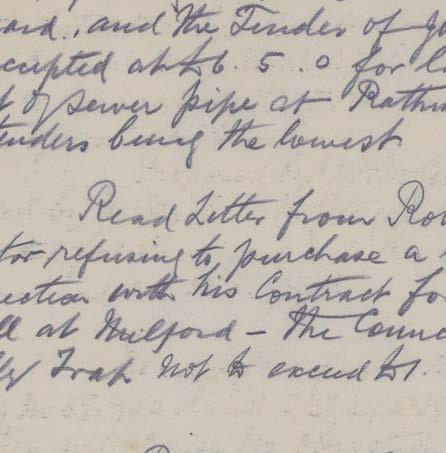 and the Tender of
accepted at £6.5.0 for
of sewer pipe at Rathm
tenders being the lowest
Read Letter from Ro
tor refusing to purchase a
nection with his Contract fo
ll at Milford - The Counc
Trap not to exceed £1.